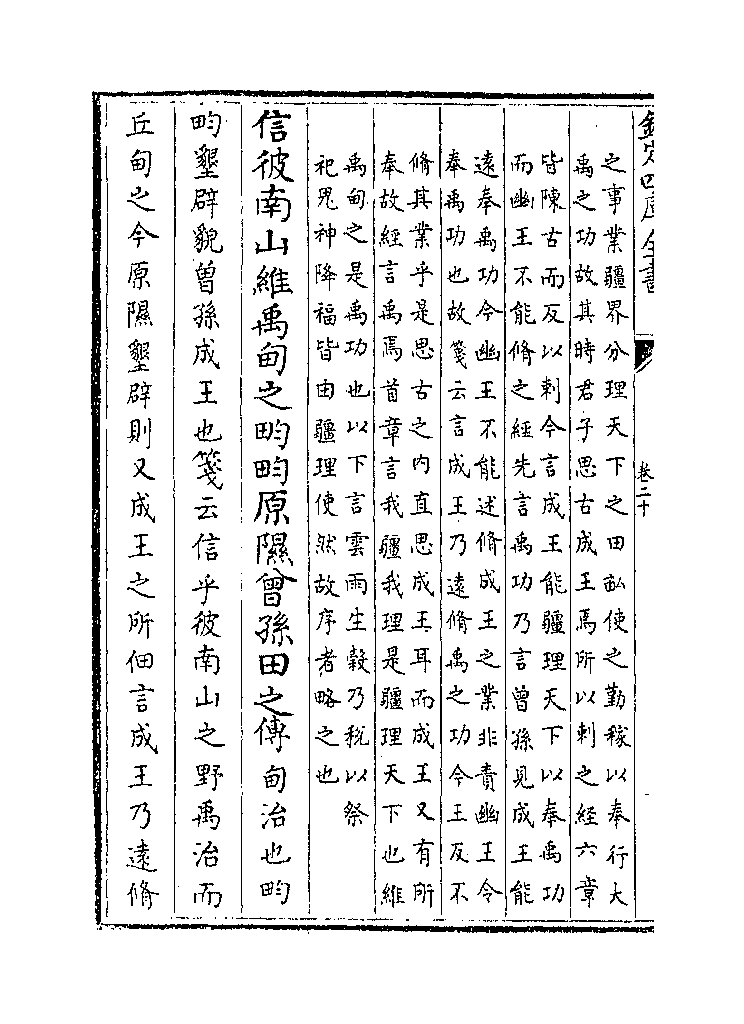 欽定四庫全書
卷二十
之事業疆界分理天下之田畝使之勤稼以奉行大
禹之功故其時君子思古成王焉所以刺之經六章
皆陳古而反以刺今言成王能疆理天下以奉禹功
而幽王不能脩之經先言禹功乃言曾孫見成王能
遠奉禹功今幽王不能述脩成王之業非責幽王令
奉禹功也故箋云言成王乃遠脩禹之功今王反不
脩其業乎是思古之内直思成王耳而成王又有所
奉故經言禹焉首章言我疆我理是疆理天下也維
禹甸之是禹功也以下言雲雨生穀乃税以祭
祀鬼神降福皆由疆理使然故序者略之也
信彼南山維禹甸之畇畇原隰曾孫田之傳甸治也畇
畇墾辟貌曾孫成王也箋云信乎彼南山之野禹治而
丘甸之今原隰墾辟則又成王之所佃言成王乃遠脩